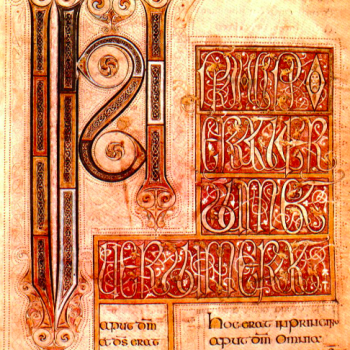 ERAT UER
BUM ET
UERBUM ERAT
aput dm̄
et ds̄ erat
hoc erat in principio
aput dm̄ omnia